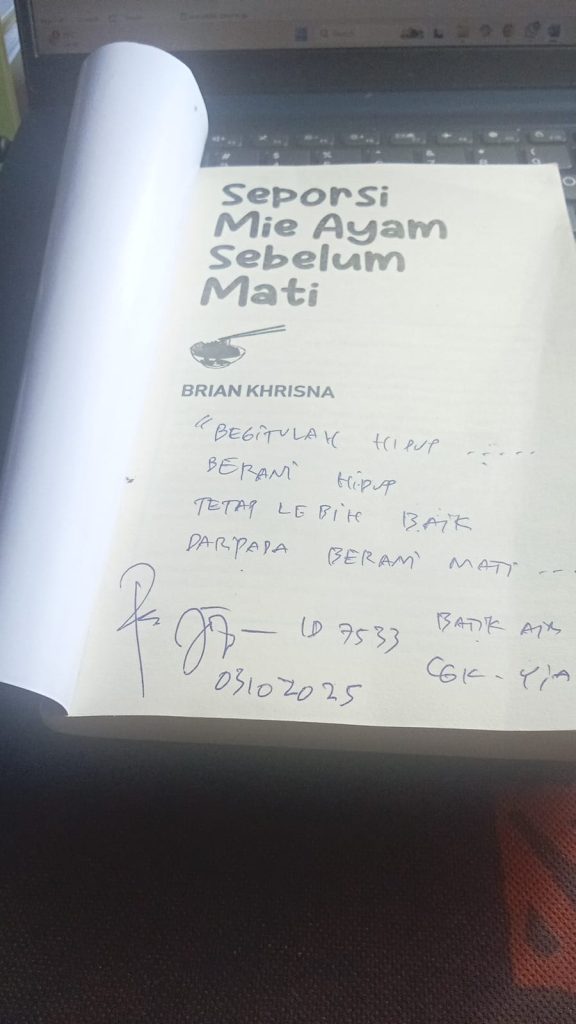 Seporsi
Mie Ayam
Sebelum
Mati
BRIAN KHRISNA
"BEGITULAH HIDUP ......
BERANI HIDUP
TETAP LEBIH BAIK
DARIPADA BERANI MATI ...
ID 7533 BATIK AIR
03102025 CGK - YIA